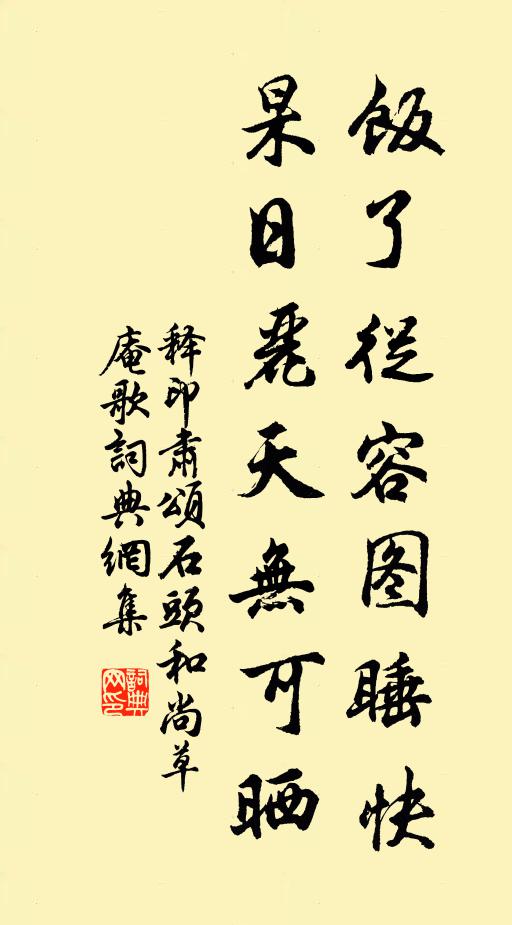 飯了從容图睡快
杲日麗天無可晒
释印肅頌石頭和尚草
庵歌詞典網集
詞典
网印